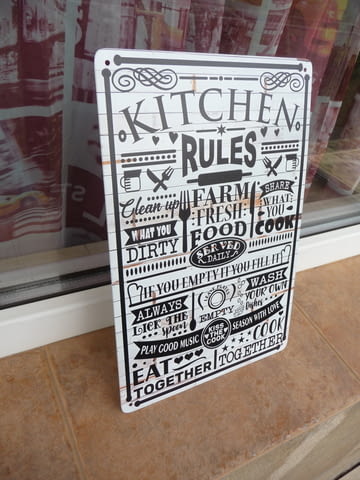 KITCHEN
RULES
Clean up
WHAT YOU
DIRTY
FARM
FRESH
FOOD
SERVED
DAILY
SHARE
WHAT
YOU
COOK
IF YOU EMPTY IF YOU FILL IT
ALWAYS
LICK THE
spoon
EMPTY
WASH
YOUR OWN
PLAY GOOD MUSIC
KISS
THE
COOK
SEASON WITH LOVE
EAT
TOGETHER
COOK
TOGETHER